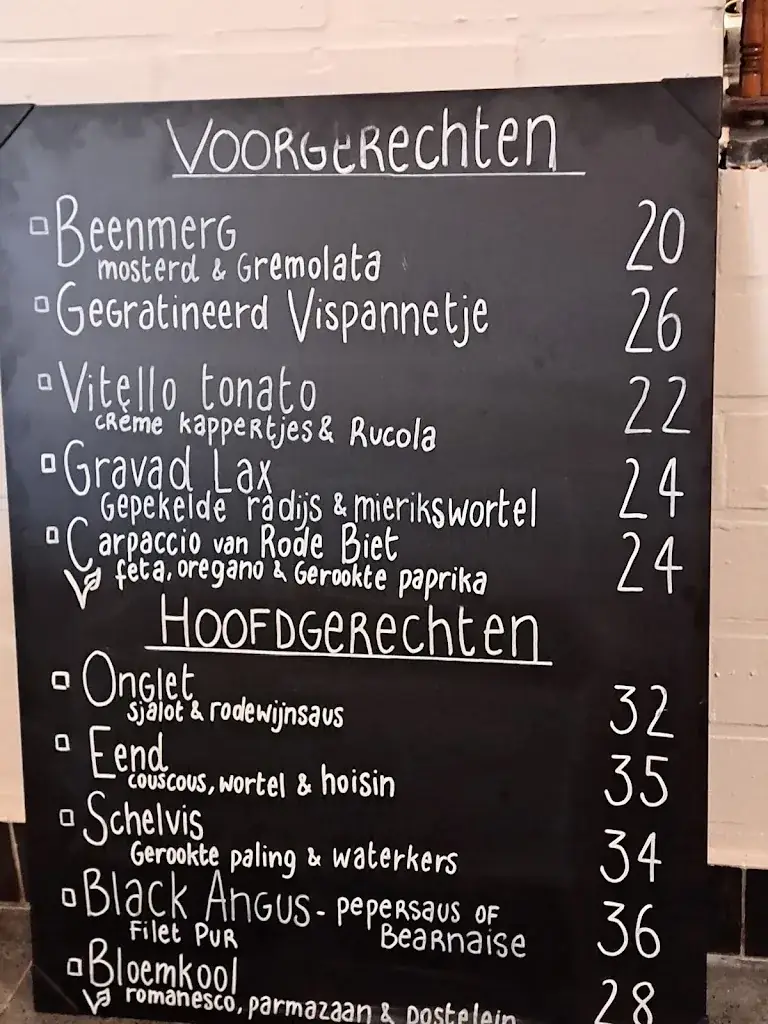 VOORGERechten
Beenmerg 20
mosterd & Gremolata
Gegratineerd Vispannetje 26
Vitello tonato 22
crème kappertjes & Rucola
Gravad Lax 24
Gepekelde radijs & mierikswortel
Carpaccio van Rode Biet 24
feta, oregano & Gerookte paprika
HOOFDGERechten
Onglet 32
sjalot & rodewijnsaus
Eend 35
couscous, wortel & hoisin
Schelvis 34
Gerookte paling & waterkers
Black Angus - pepersaus of 36
Filet Pur Bearnaise
Bloemkool 28
romanesco, parmazaan & postelein